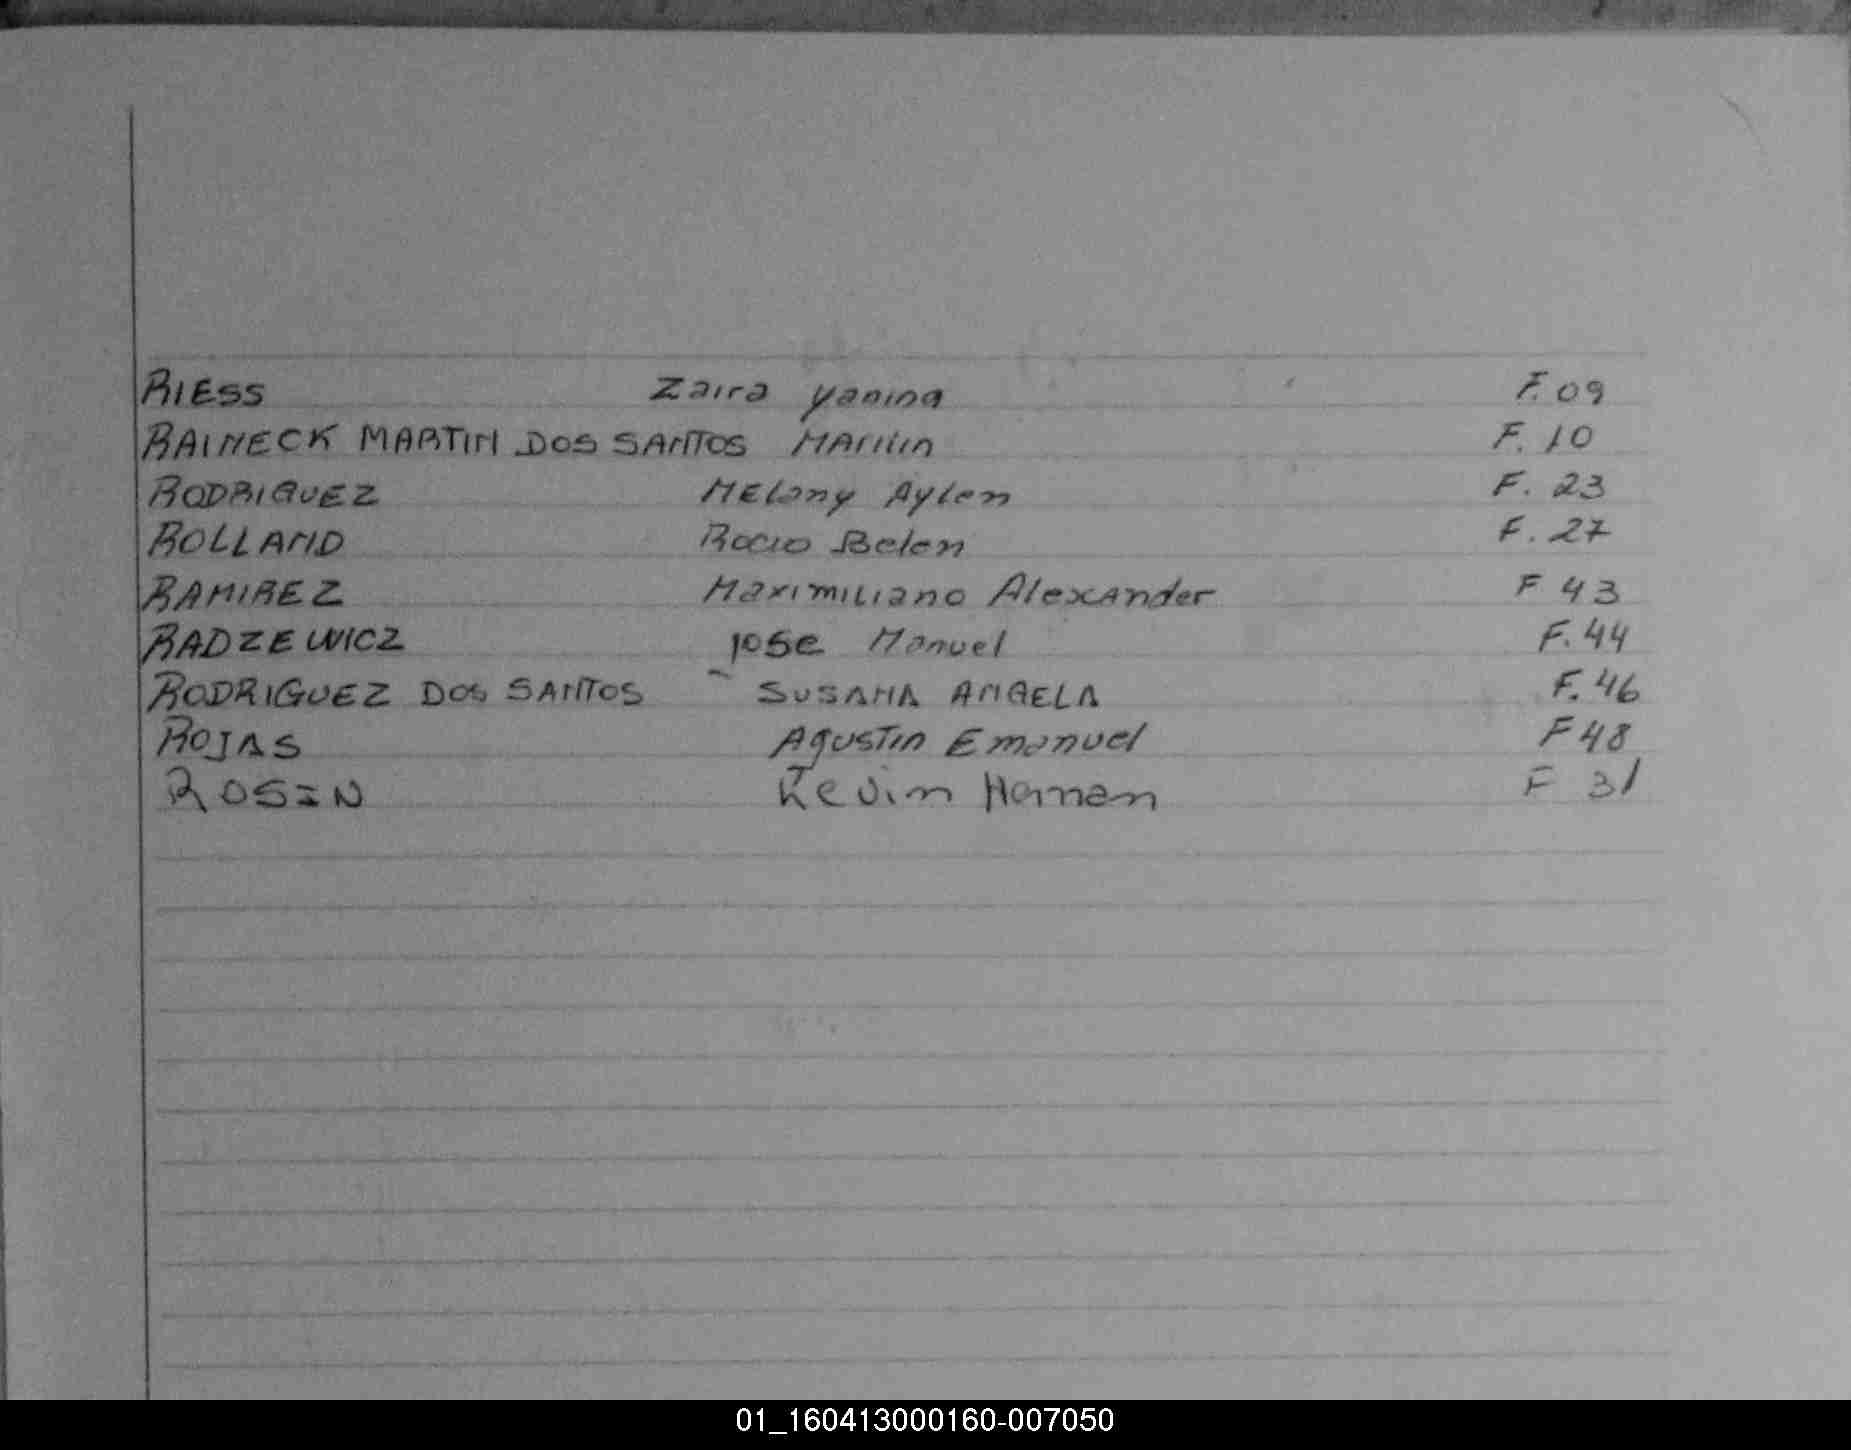 RIESS Zaira Yanina F. 09
RAINECK MARTIN DOS SANTOS MARilin F. 10
RODRIGUEZ MELany Aylen F. 23
ROLLAND Rocio Belen F. 27
RAMIREZ Maximiliano Alexander F 43
RADZEWICZ jose Manuel F. 44
RODRIGUEZ DOS SANTOS SUSANA ANGELA F. 46
ROJAS Agustin Emanuel F 48
ROSIN Kevin Hernan F 31
01_160413000160-007050